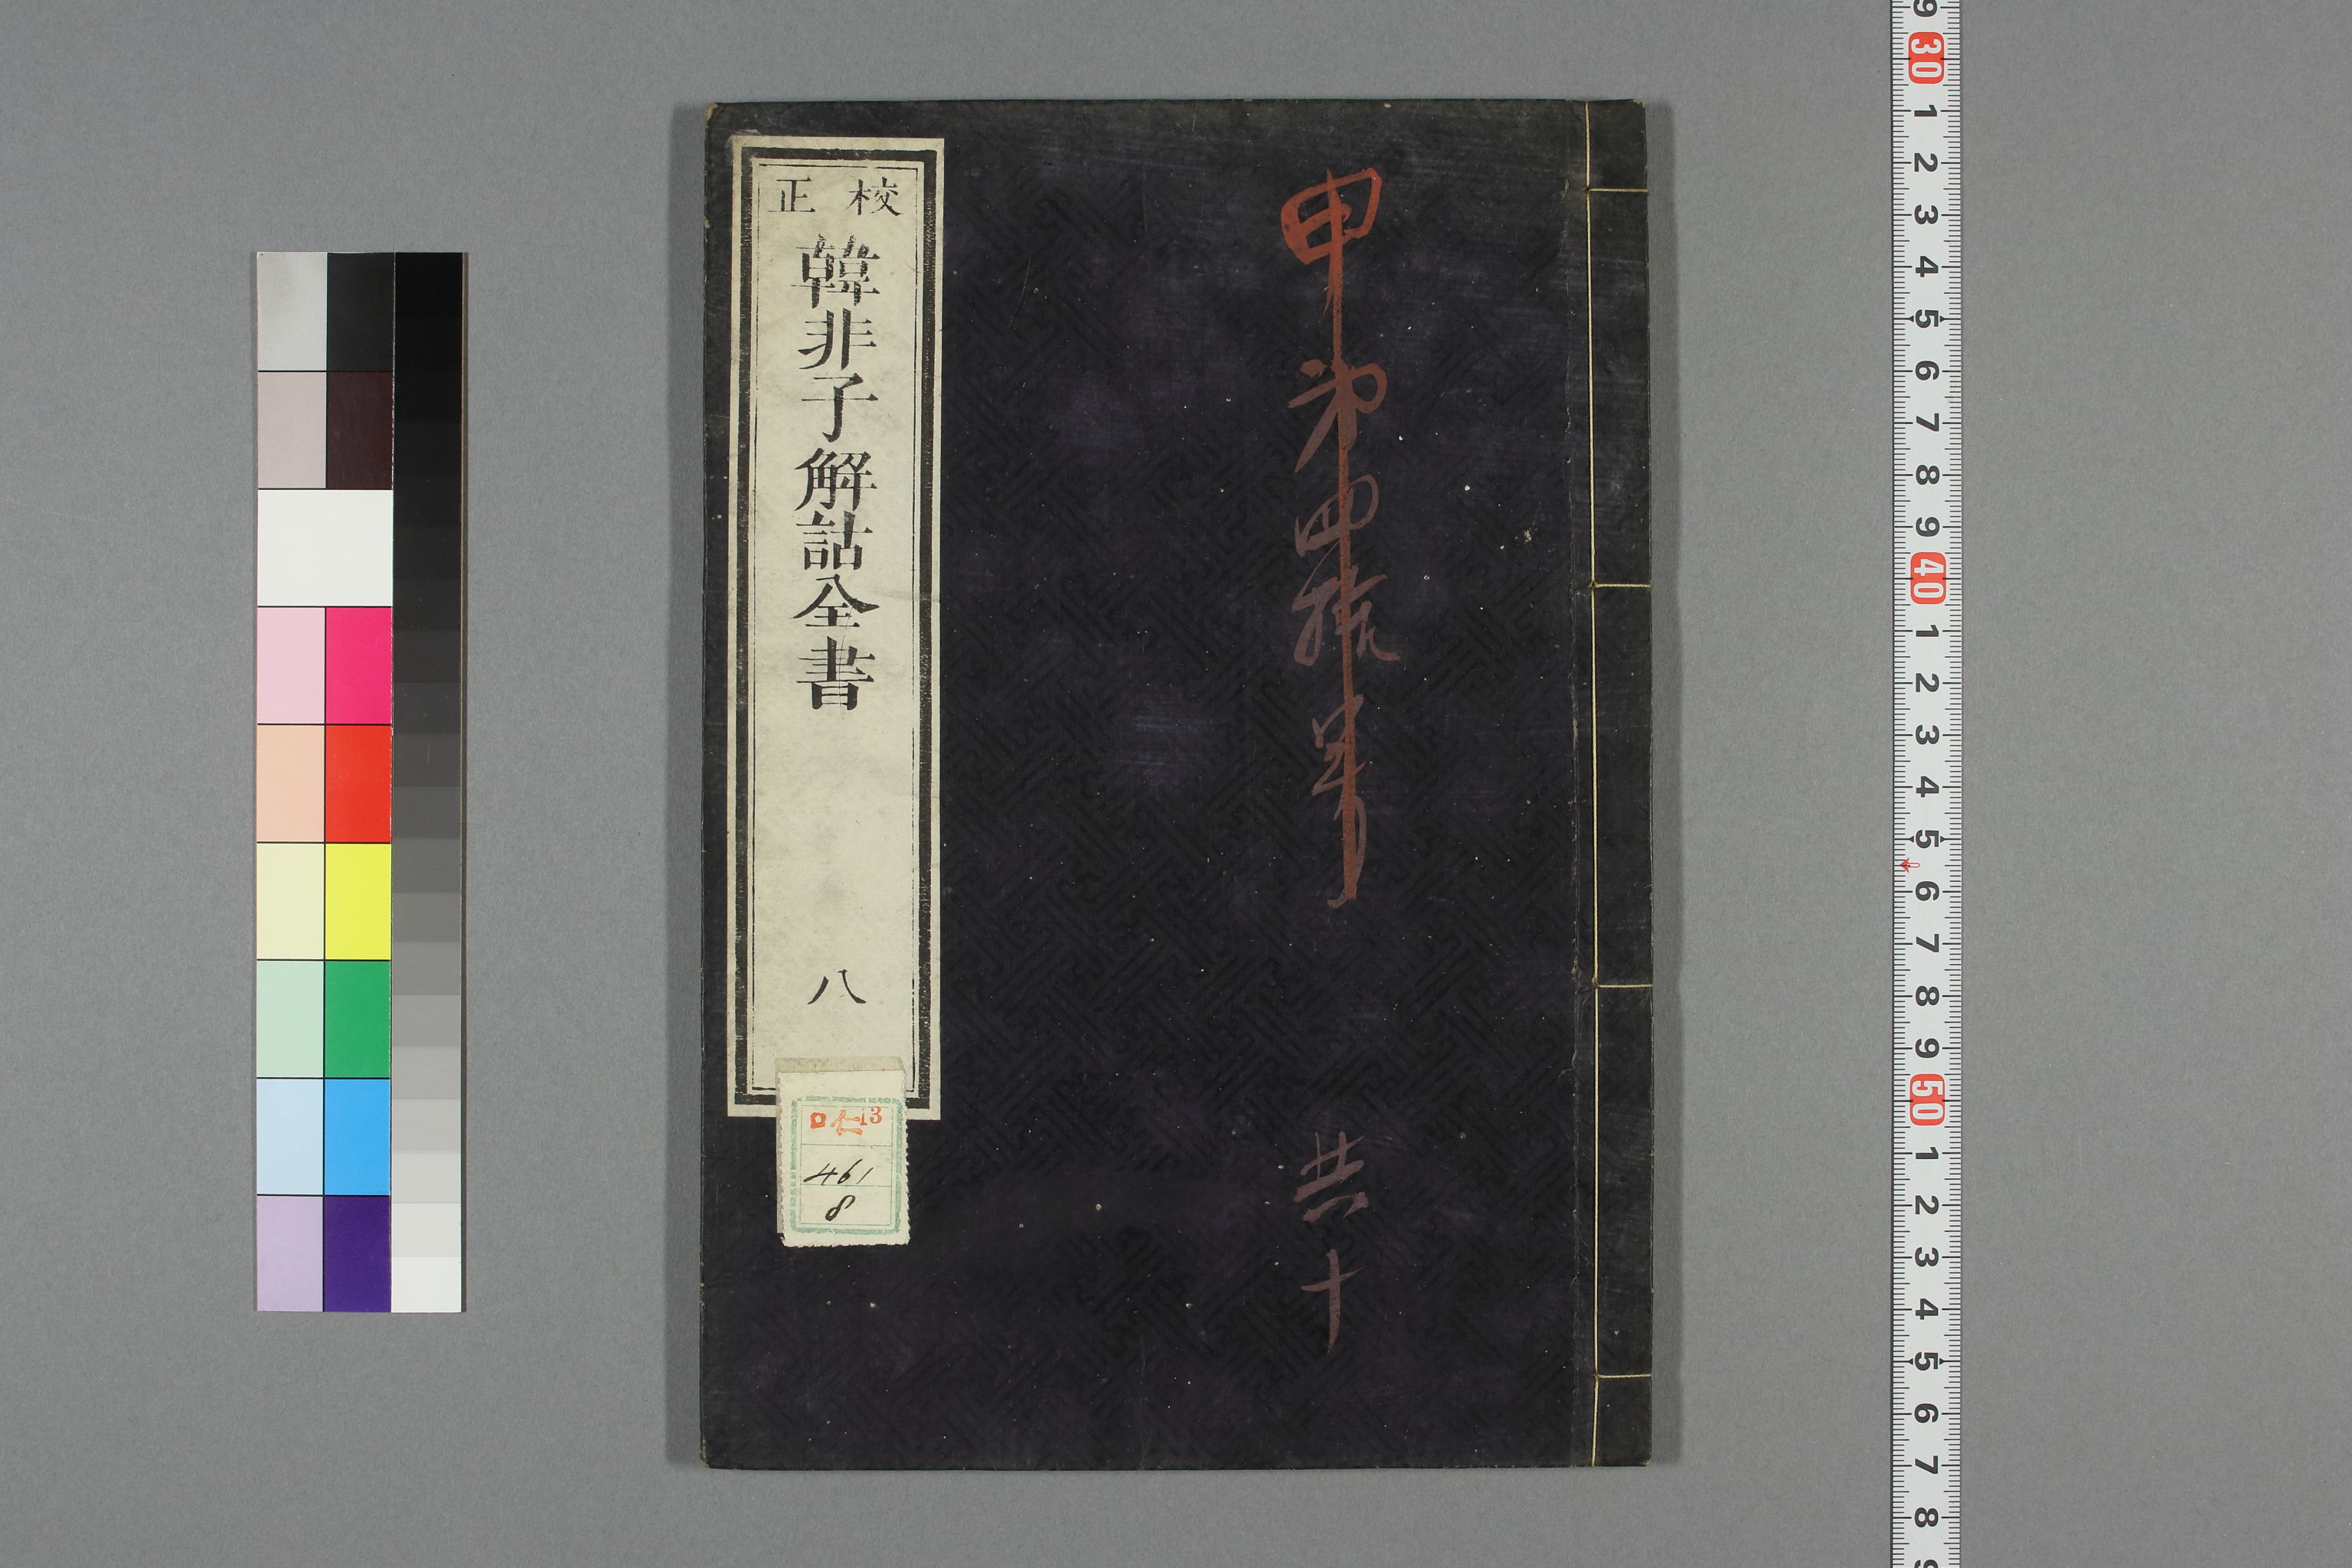 甲第四號
共十
校正
韓非子解詁全書
八
ロ仁13
461
8
9 30 1 2 3 4 5 6 7 8 9 40 1 2 3 4 5 6 7 8 9 50 1 2 3 4 5 6 7 8 9